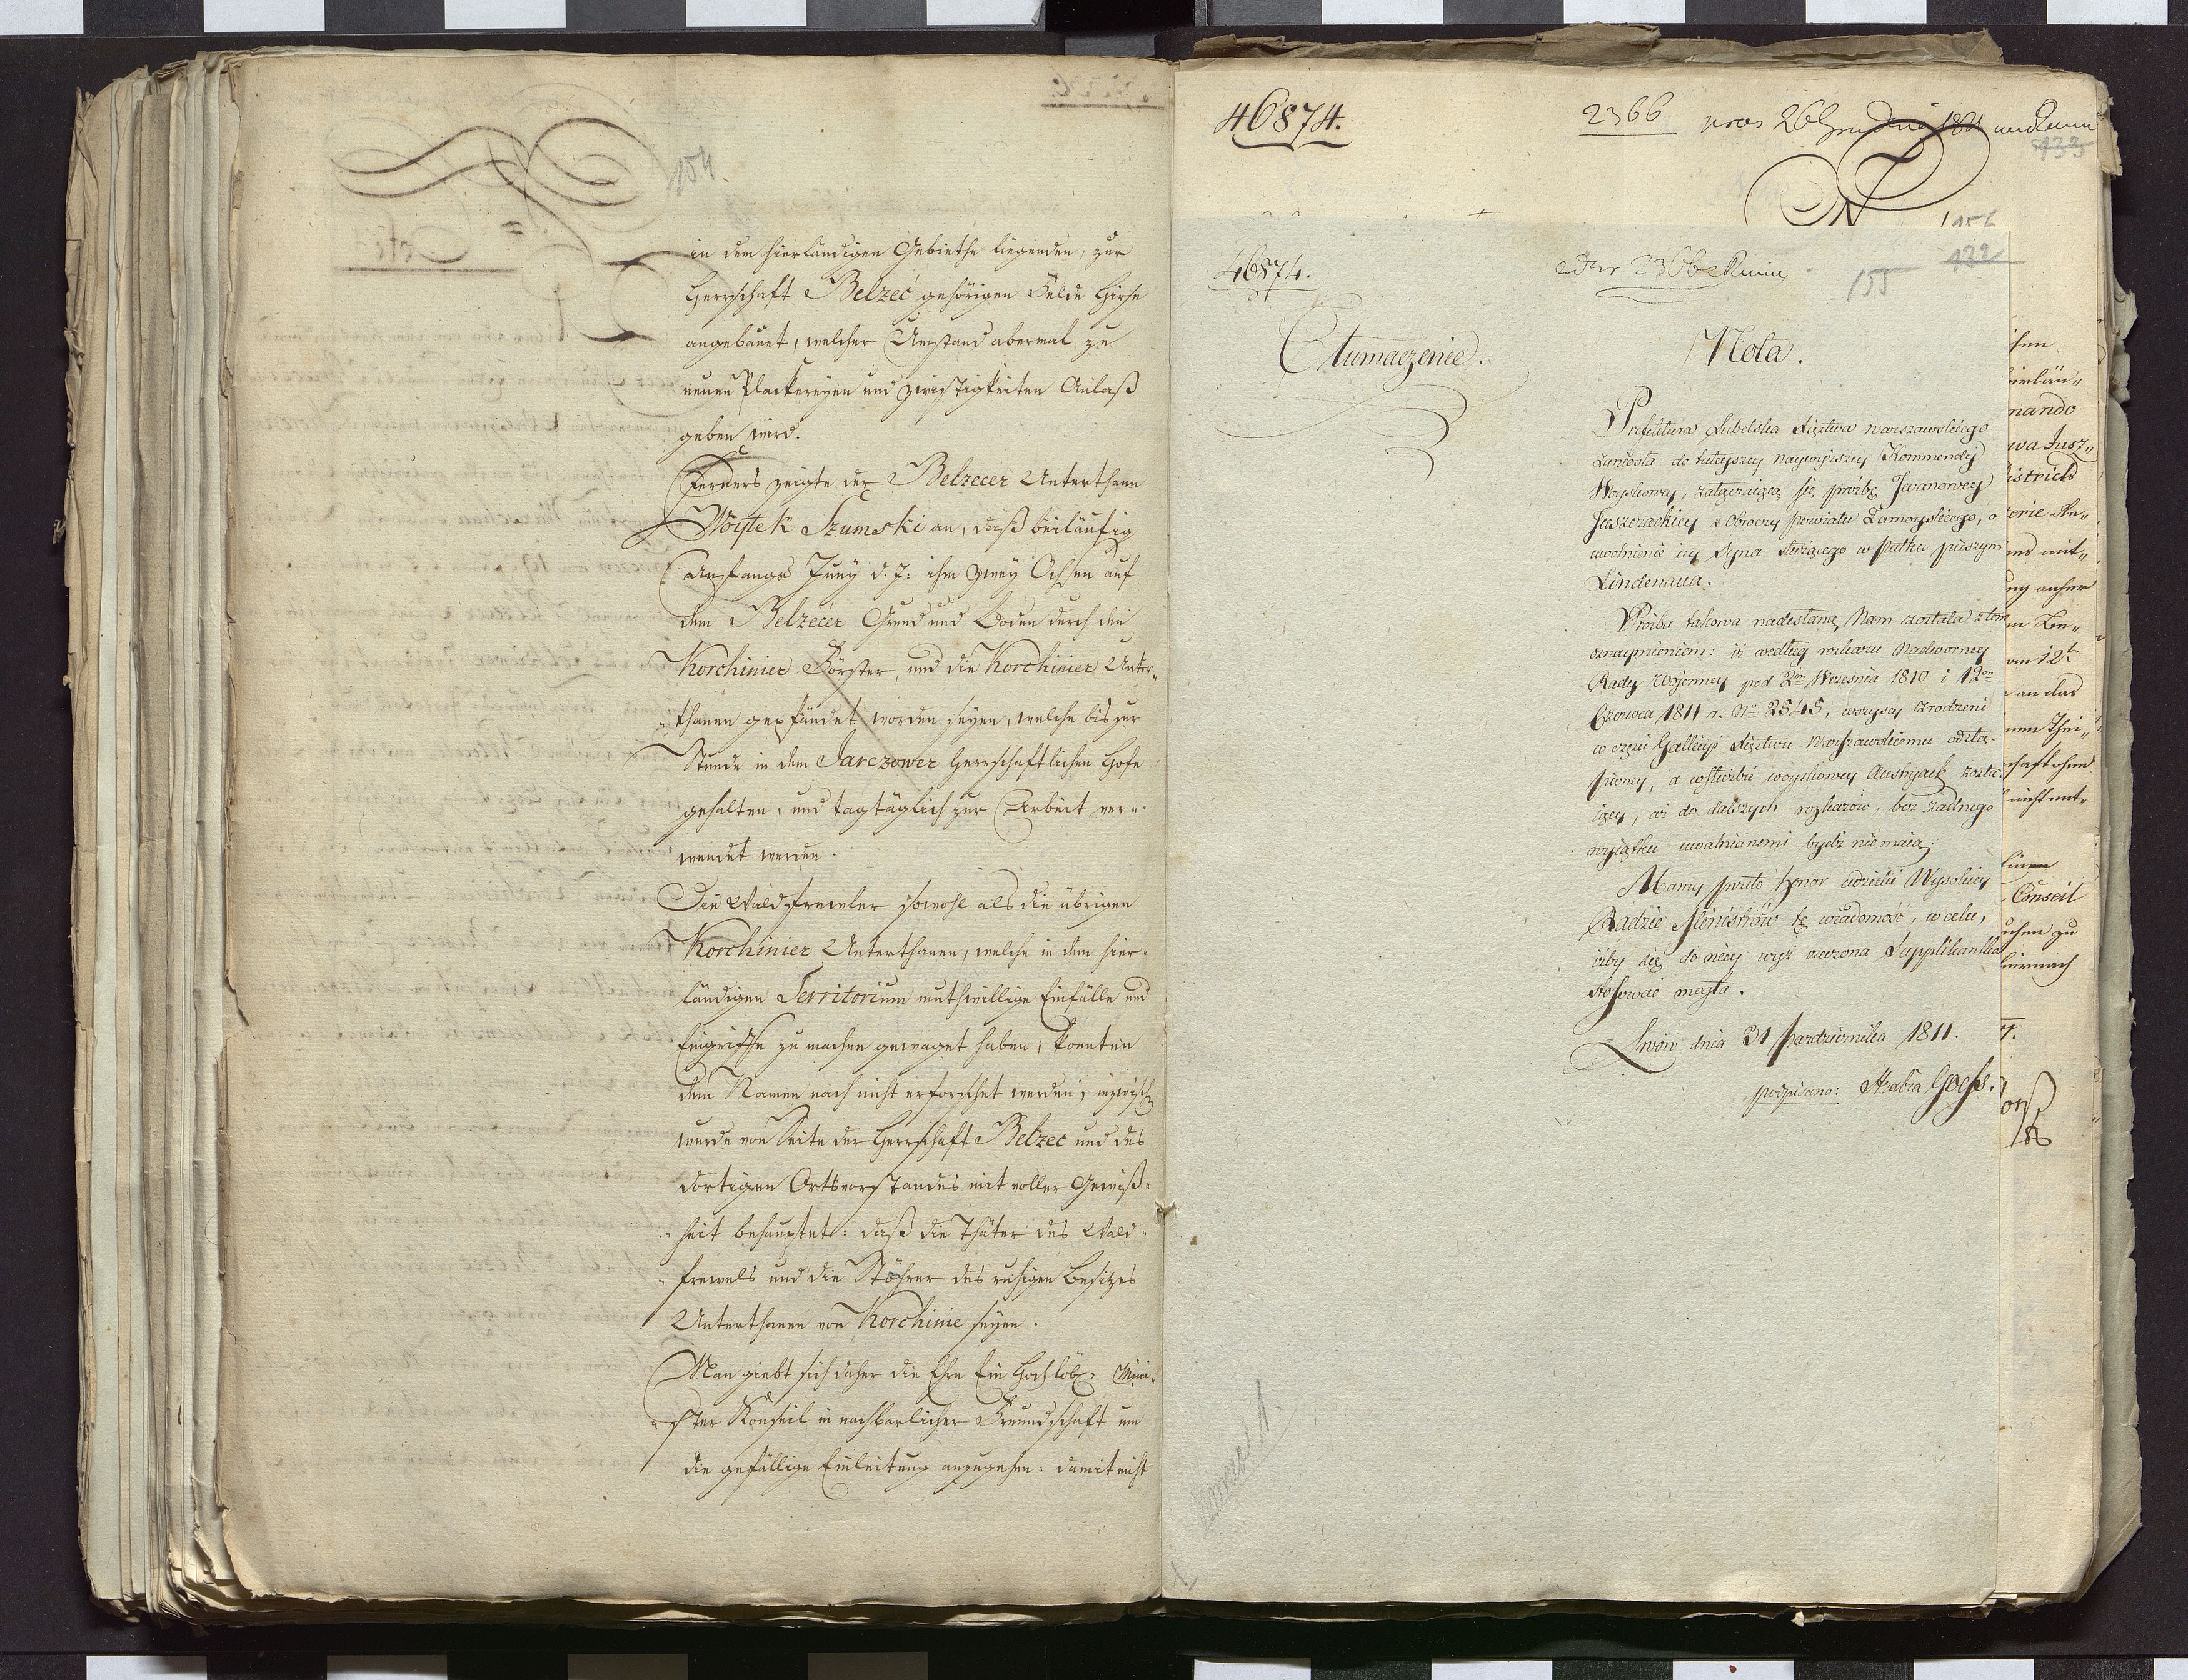 154.
in dem hierländigen Gebiethe liegenden, zur
Herrschaft Belzec gehörigen Felde Hirse
angebauet, welcher Umstand abermal zu
neuen Plackereyen und Zwistigkeiten Anlaß
geben wird.
Ferners zeigte der Belzecer Unterthan
Woytek Szumski an, daß beiläufig
Anfangs Juny d. J: ihm zwey Ochsen auf
dem Belzecer Grund und Boden durch den
Korchinier Förster, und die Korchinier Unter-
thanen gepfändet worden seyen, welche bis zur
Stunde in dem Jarczower herrschaftlichen Hofe
gehalten, und tagtäglich zur Arbeit ver-
wendet werden.
Die Waldfrevler sowohl als die übrigen
Korchinier Unterthanen, welche in dem hier-
ländigen Territorium muthwillige Einfälle und
Eingriffe zu machen gewaget haben, konnten
dem Namen nach nicht erforschet werden,
wurde von Seite der Herrschaft Belzec und des
dortigen Ortsvorstandes mit voller Gewiß-
heit behauptet: daß die Thäter des Wald-
frevels und die Stöhrer des ruhigen Besitzes
Unterthanen von Korchinie seyen.
Man giebt sich daher die Ehre Ein Hochlöb: Mini-
ster Konseil in nachbarlicher Freundschaft um
die gefällige Einleitung anzugehen: damit nicht
46874.
2366
133
156
46874.
155
132
Tłumaczenie.
Nota.
Prefektura Lubelska Xięztwa warszawskiego
zaniosła do tuteyszey naywyższey Kommendy
Woyskowey, załączaiącą się proźbę Iwanowey
Juszczackiey z Obroczy powiatu Zamoyskiego, o
uwolnienie iey Syna służącego w pułku pieszym
Lindenaua.
Proźba takowa nadesłaną Nam została z tem
oznaymieniem: iż według rozkazu Nadworney
Rady Woienney pod 2 Września 1810 i 12
Czerwca 1811 r. No 2545, wszyscy zrodzeni
w części Gallicyi Xięztwu Warszawskiemu odstą-
pioney, a w służbie woyskowey Austryack: zosta-
iący, aż do dalszych rozkazów, bez żadnego
wyiątku uwalnianemi bydź nie maią;
Mamy przeto honor udzielić Wysokiey
Radzie Ministrów tę wiadomość, w celu,
iżby się do niey wyż rzeczona Supplikantka
stosować mogła.
Lwów dnia 31 Pazdziernika 1811.
podpisano: Hrabia Goess.
nando
wa Jusz-
istricts
Conseil